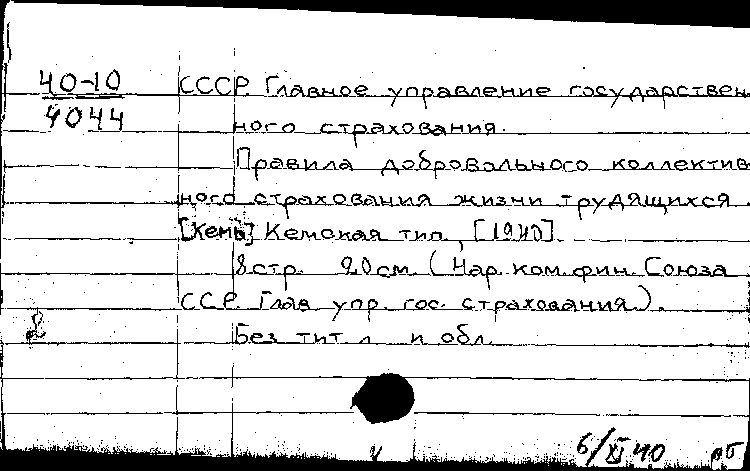 40-10
4044
СССР. Главное управление государствен
ного страхования.
Правила добровольного коллектив
ного страхования жизни трудящихся.
[Кемь] Кемская тип, [1940].
8 стр. 20 см. (Нар. ком. фин. Союза
ССР. Глав. упр. гос. страхования).
Без тит л и обл.
6/XI 40